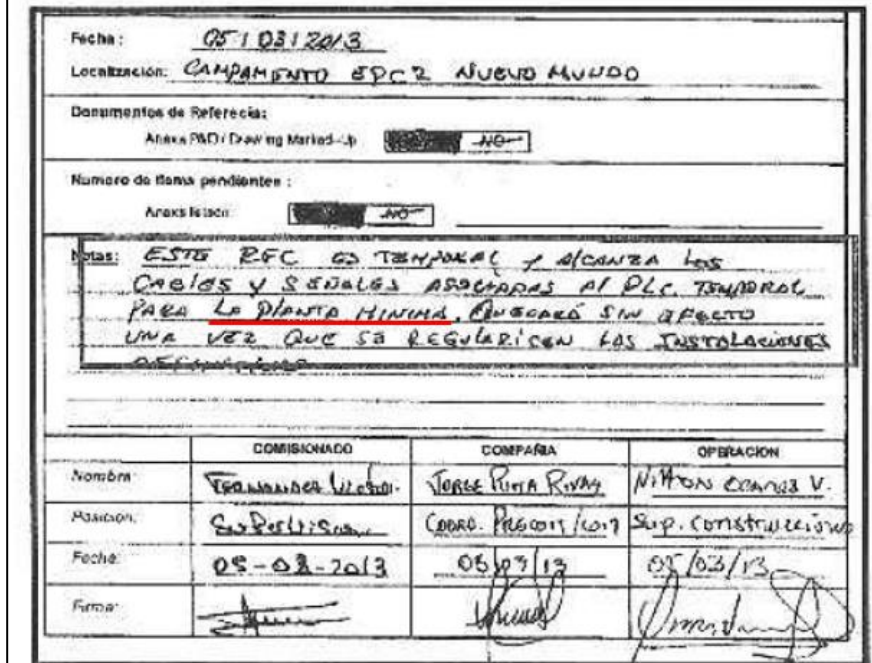 Fecha: 05/03/2013
Localización: CAMPAMENTO EPC2 NUEVO MUNDO
Documentos de Referecia:
Anexa P&ID / Drawing Marked-Up NO
Numero de items pendientes :
Anexa listado: NO
Notas: ESTE RFC ES TEMPORAL y AlCANZA los
CABles y SEÑALES ASOCIADAS Al PLC. TEMPORAL
PARA LA PlANTA MINIMA. QUEDARÁ SIN EFECTO
UNA VEZ QUE SE REGULARICEN LAS INSTALACIONES
COMISIONADO COMPAÑIA OPERACION
Nombre: FERNANDEZ JORGE RIVAS V.
Posicion: Supervisor COORD. Sup. Construcciones
Fecha: 05-03-2013 05/03/13 05/03/13
Firma: